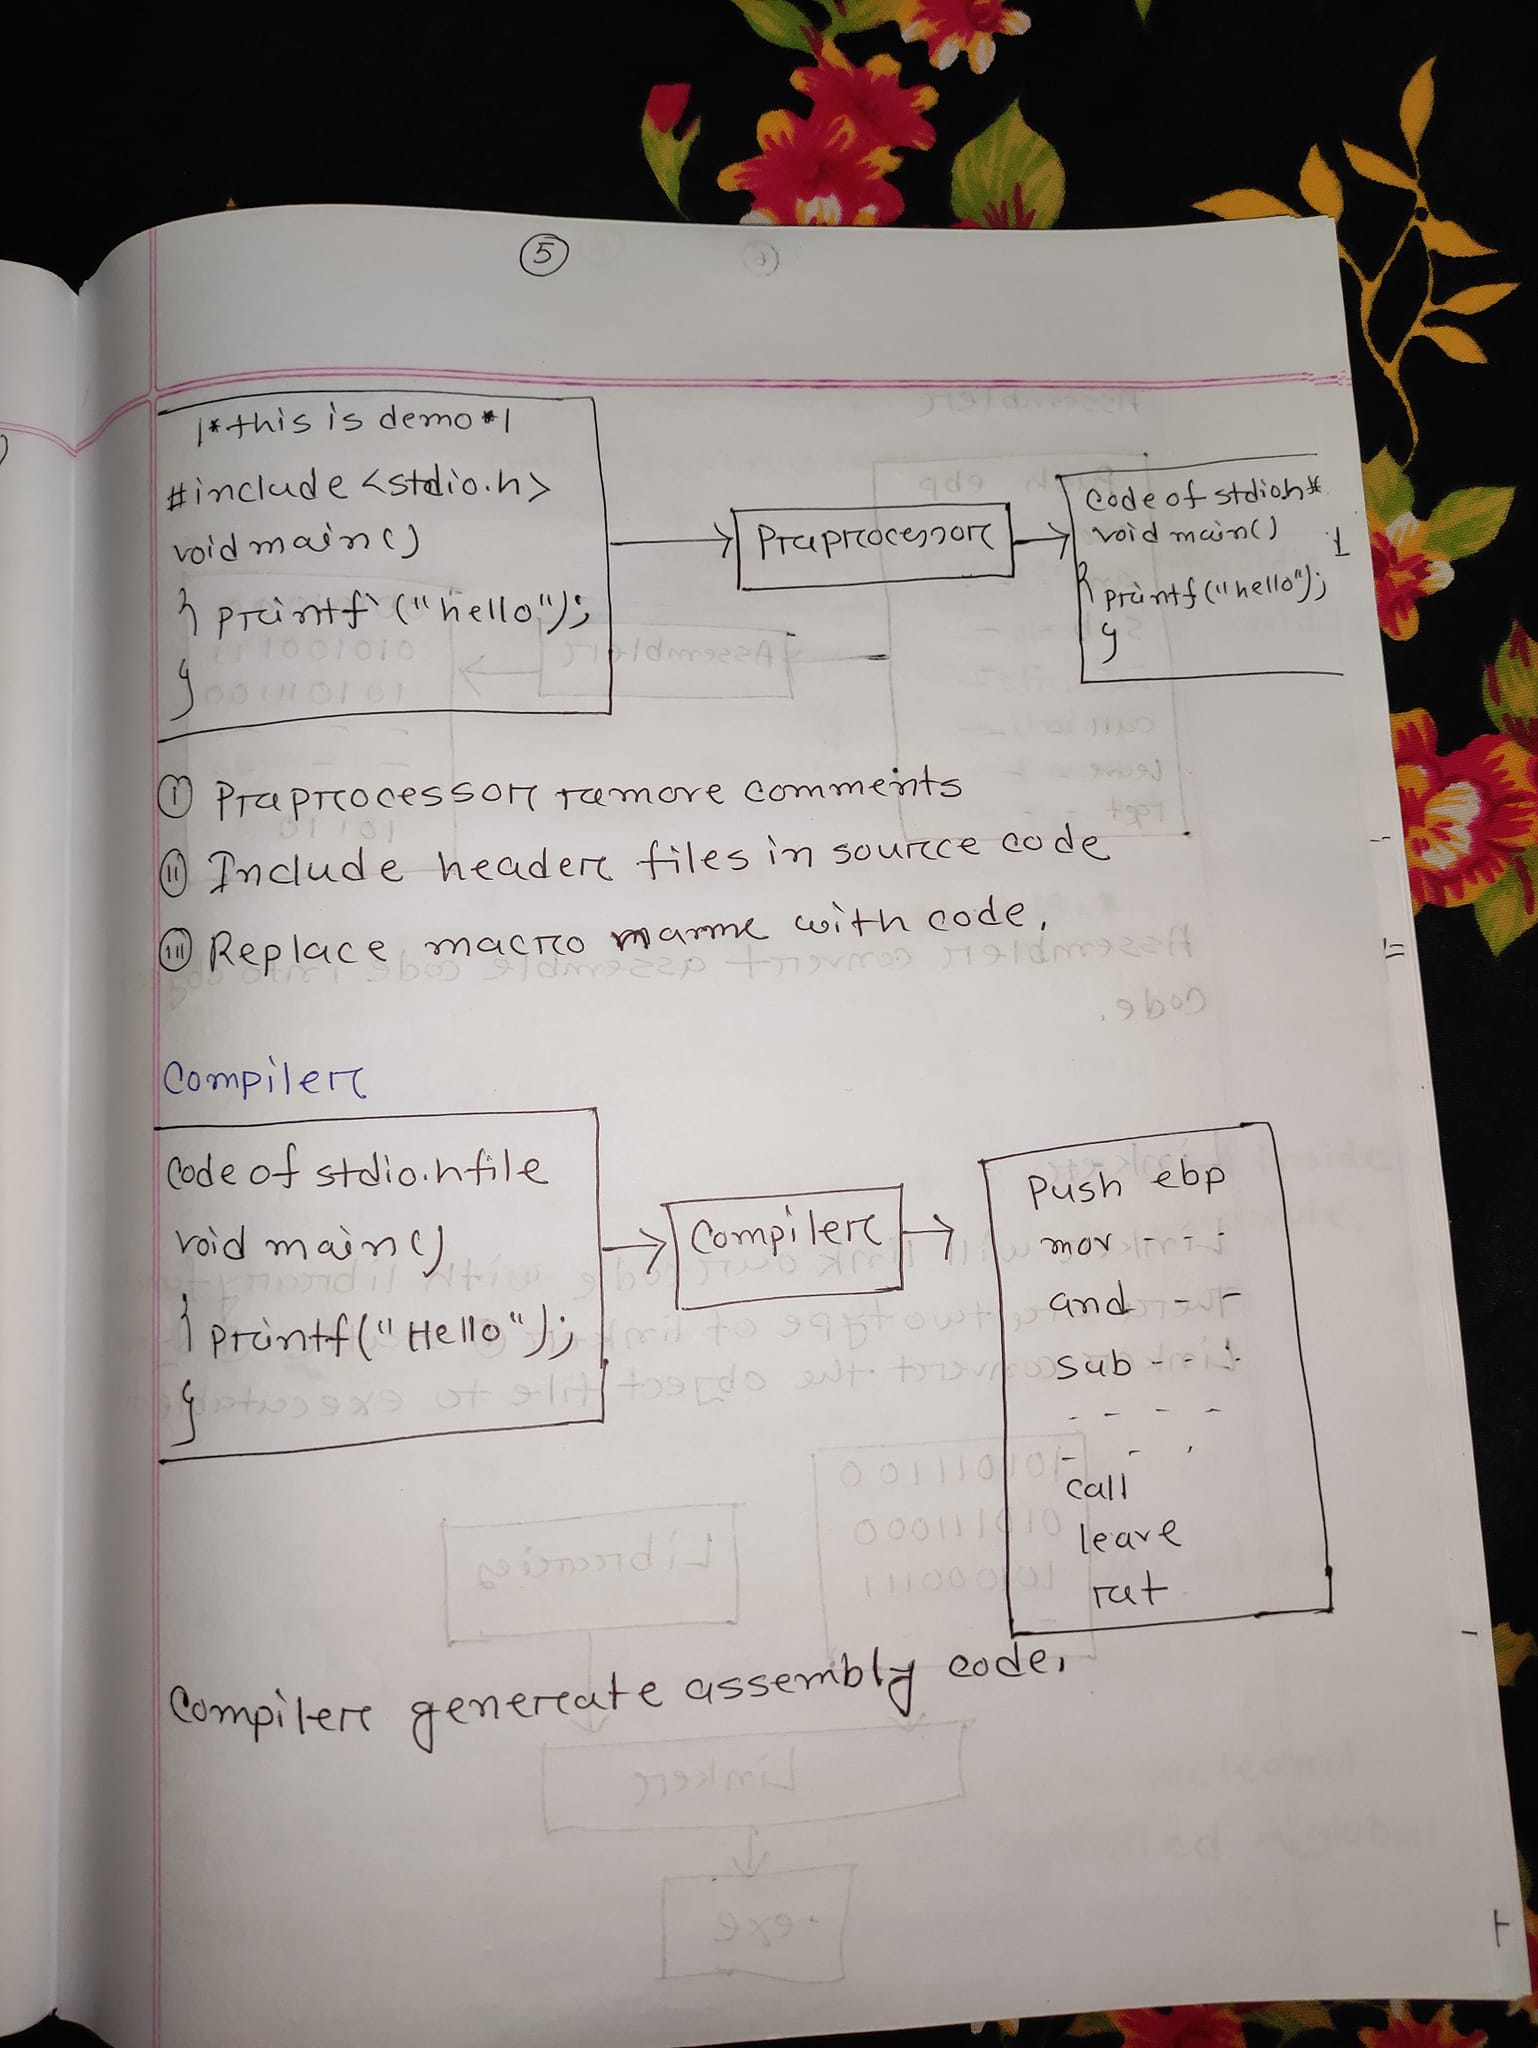 5
/*this is demo*/
#include <stdio.h>
void main()
{ printf("hello");
}
Preprocessor
code of stdioh*
void main()
{ printf("hello");
}
(i) Preprocessor remove comments
(ii) Include header files in source code
(iii) Replace macro name with code.
Compiler
Code of stdio.h file
void main()
{ printf("Hello");
}
Compiler
Push ebp
mov - - -
and - -
sub - - -
- - - -
- - -
call
leave
ret
Compiler generate assembly code.